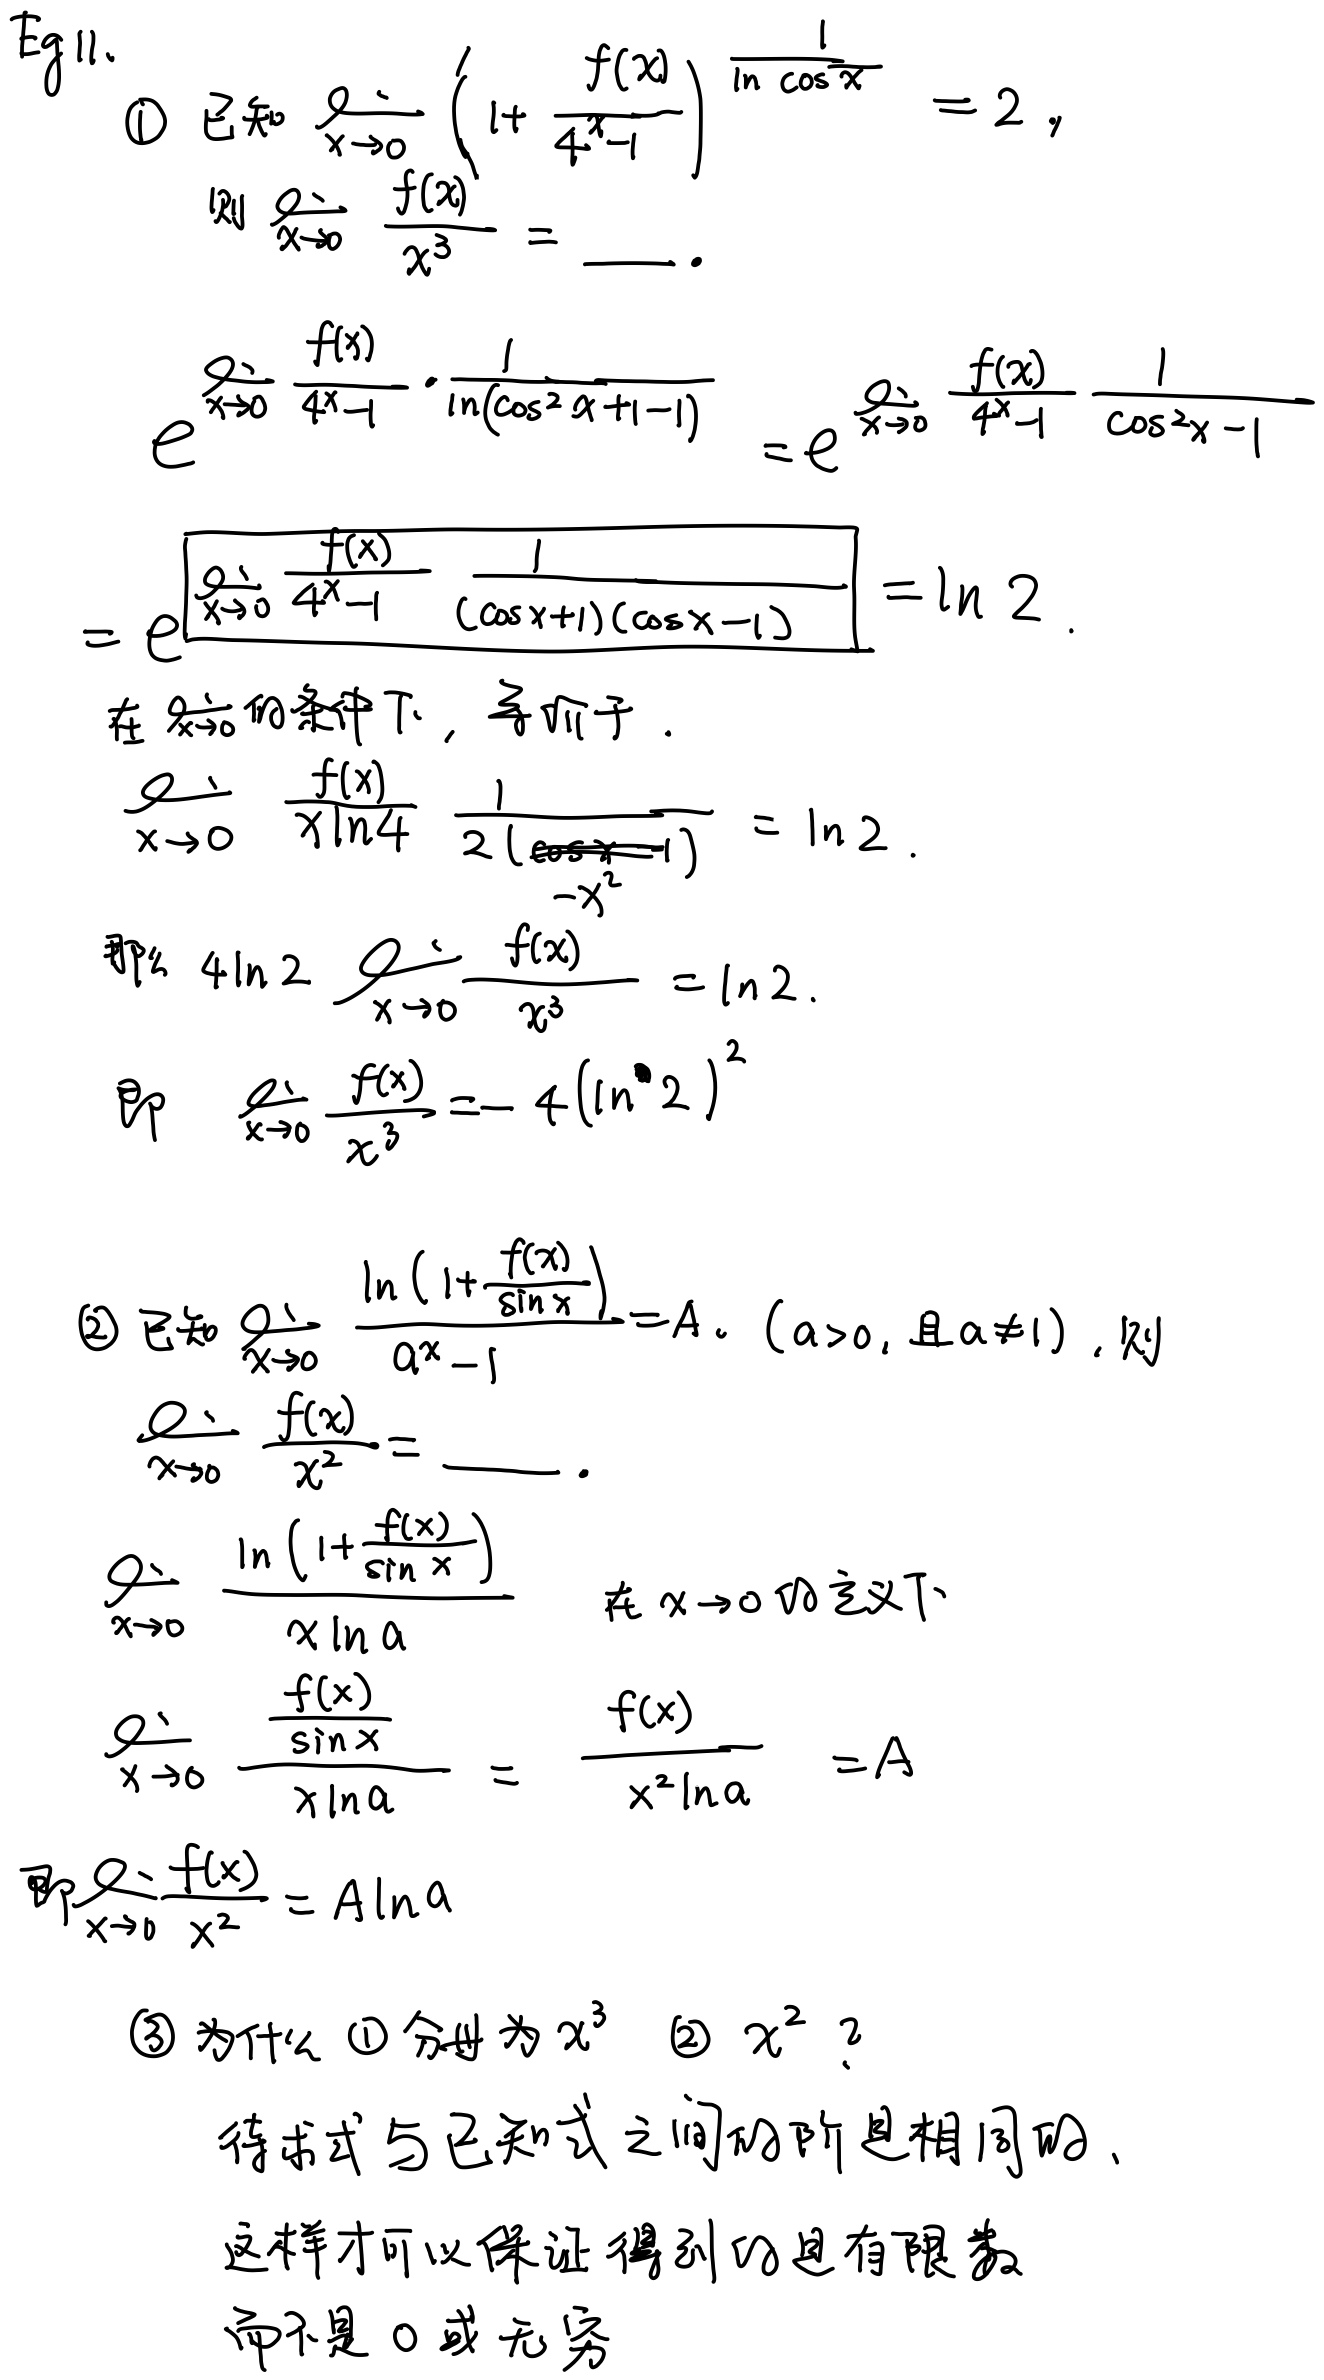 Eg 11.
① 已知 lim x→0 (1+ f(x)/(4^x-1))^(1/(ln cos x)) = 2,
则 lim x→0 f(x)/x³ = ___.
e^(lim x→0 f(x)/(4^x-1) · 1/(ln(cos²x+1-1))) = e^(lim x→0 f(x)/(4^x-1) 1/(cos²x-1))
= e^(lim x→0 f(x)/(4^x-1) 1/((cosx+1)(cosx-1))) = ln 2.
在 lim x→0 的条件下, 等价于.
lim x→0 f(x)/(x ln4) 1/(2(cosx-1)) = ln 2.
-x²
那么 4ln2 lim x→0 f(x)/x³ = ln2.
即 lim x→0 f(x)/x³ = -4(ln 2)²
② 已知 lim x→0 ln(1+ f(x)/sinx)/(a^x-1) = A. (a>0, 且a≠1), 则
lim x→0 f(x)/x² = ___.
lim x→0 ln(1+ f(x)/sin x)/(x ln a) 在 x→0 的定义下
lim x→0 (f(x)/sinx)/(x ln a) = f(x)/(x² ln a) = A
即 lim x→0 f(x)/x² = A ln a
③ 为什么 ① 分母为 x³ ② x² ?
待求式与已知式之间的阶是相同的、
这样才可以保证得到的是有限数
而不是 0 或无穷